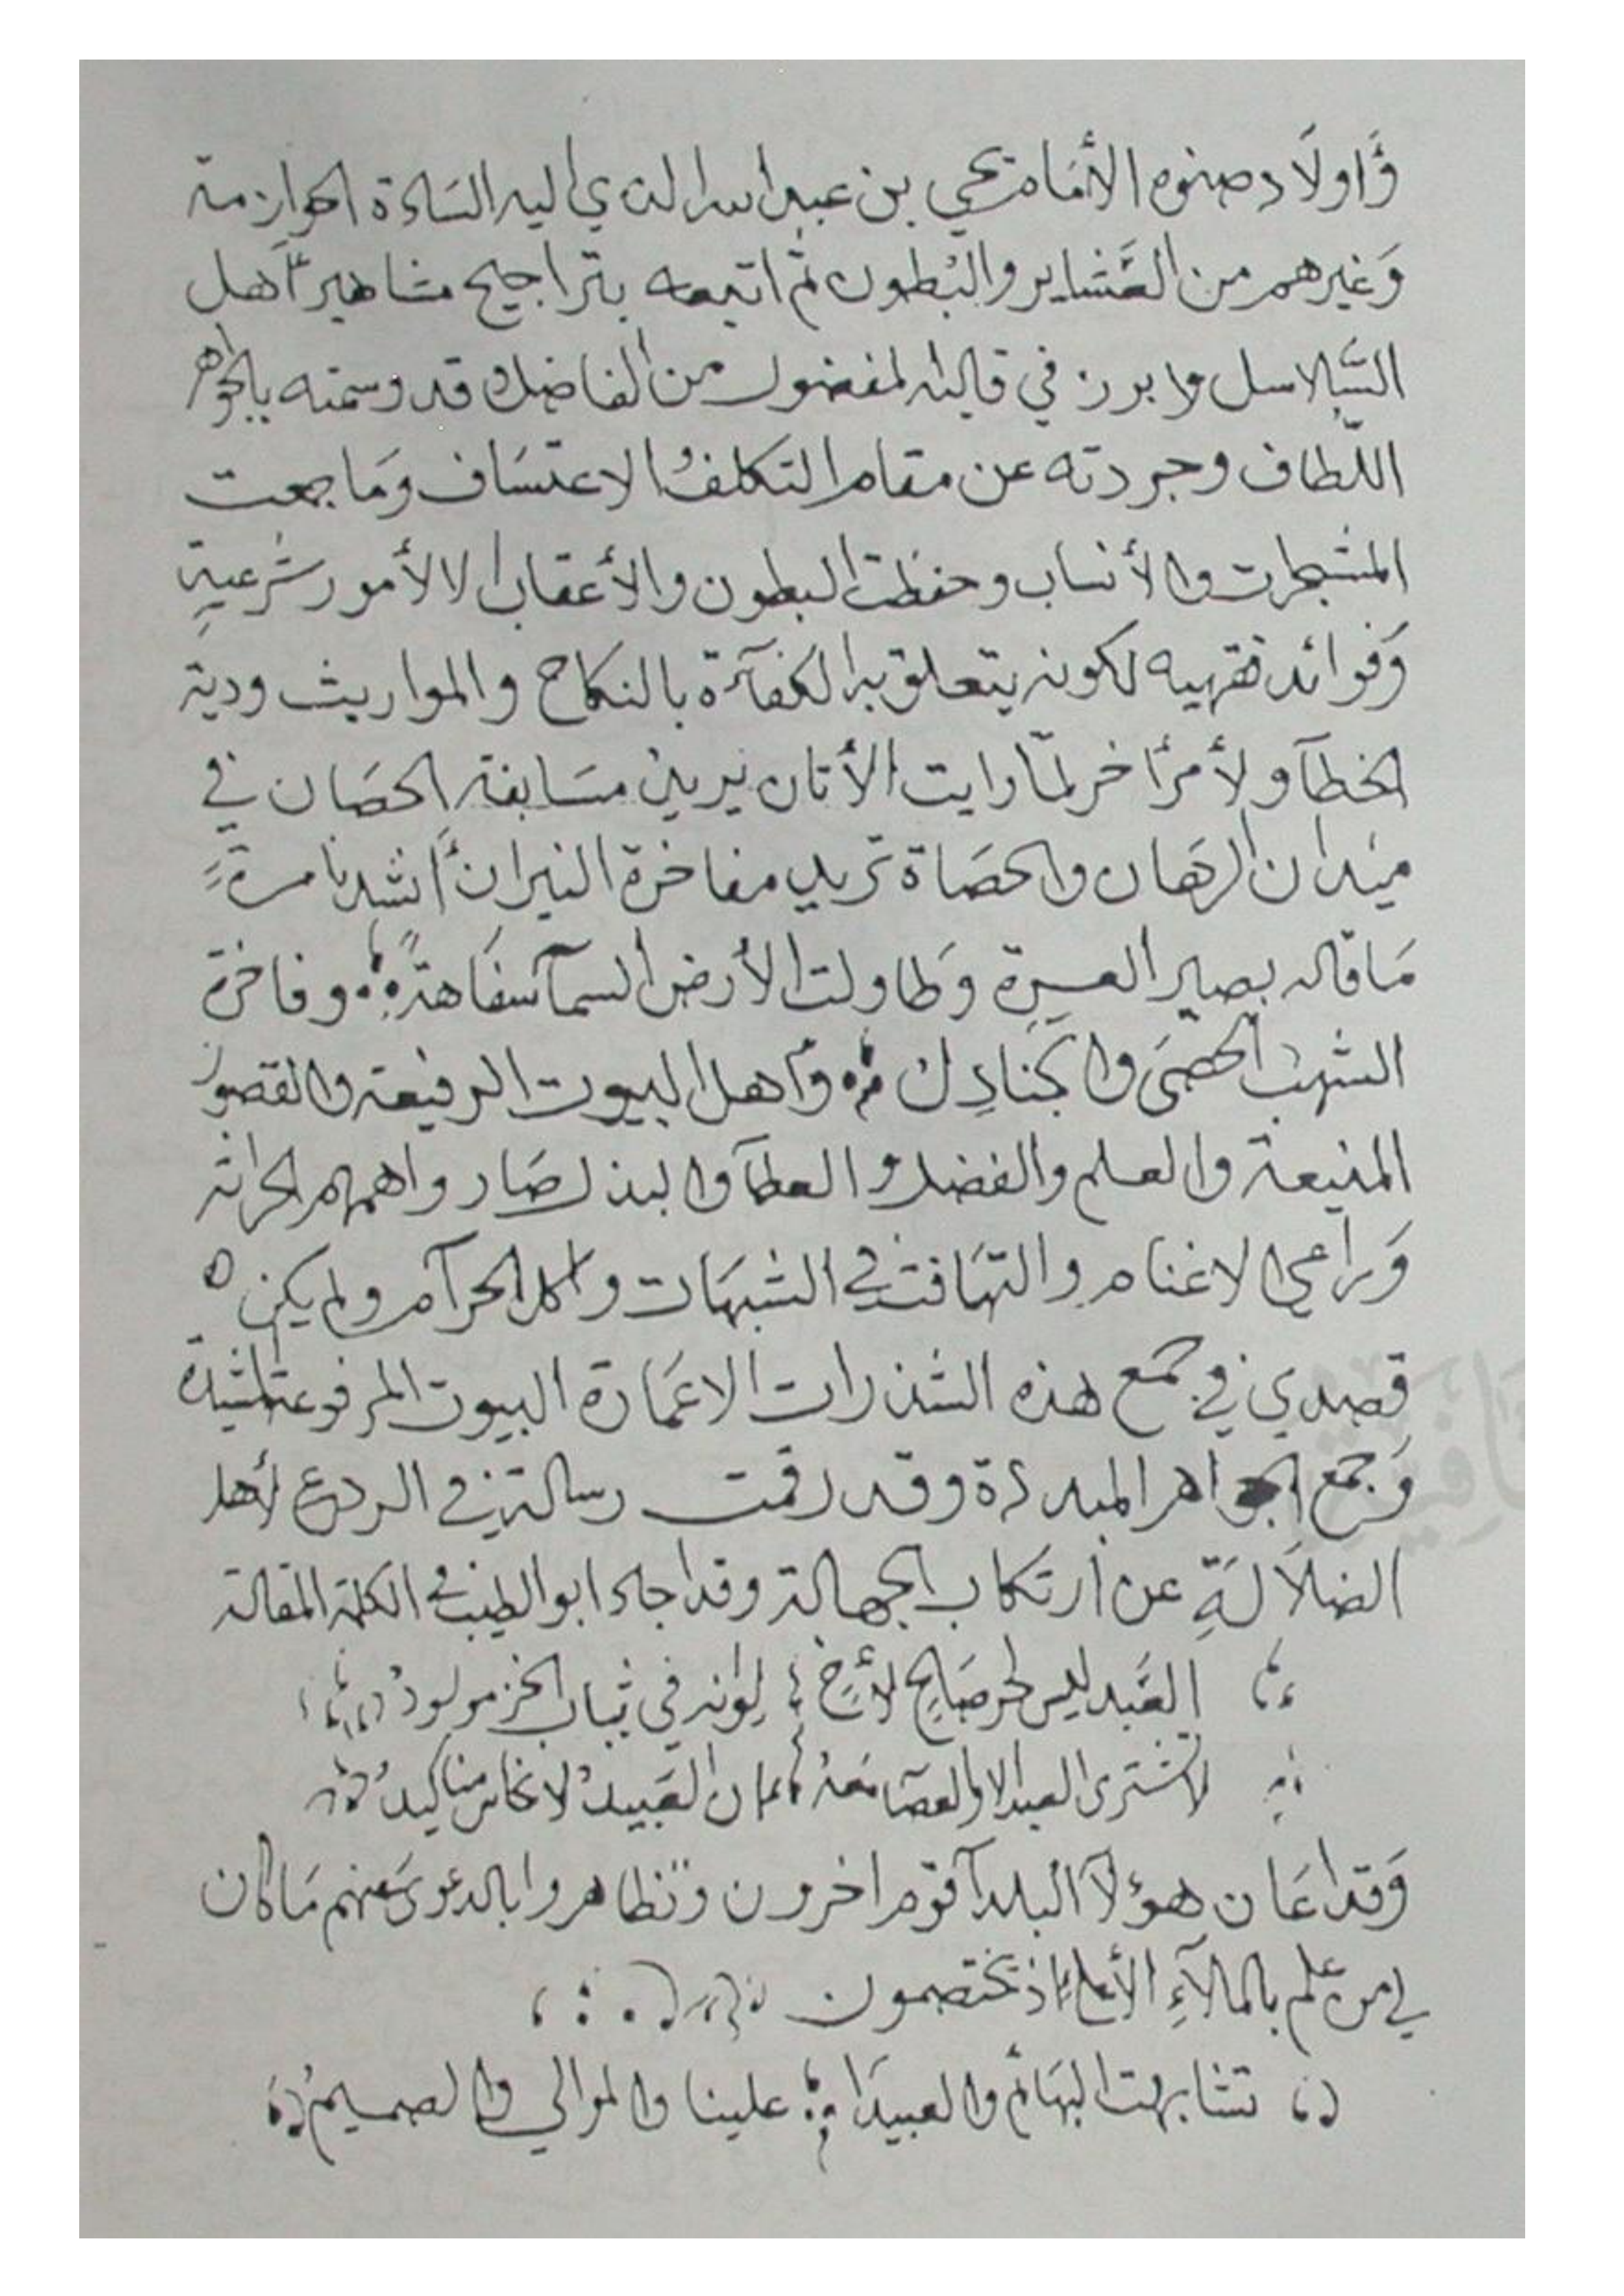 وَأولَاد صنوه الأمَام يحي بن عبد الله الذي اليه السَادة الحوازمة
وَغيرهم من العَشاير والبُطون ثم اتبعه بتراجيح مشاهير أهل
السَّلاسل وابرز في قالبه المفضول من الفاضل وقد وسمته بالجواهر
اللّطاف وجردته عن مقام التكلف والاعتسَاف وَما جمعت
المشجرات والأنساب وحفظت البطون والأعقاب الا لأمور شرعيةٍ
وَفوائد فقهيه لكونه يتعلق به الكفآءة بالنكاح والمواريث ودية
الخطآ ولأمر أخر لمّا رايت الأتان يريد مسَابقة الحصَان في
ميدان الرهَان والحصَاة تريد مفاخرة النيران أنشدنا مرةً
مَا قاله بصير وَطاولت الأرض السمآ سفَاهةً وفاخرة
الشهبَ الحصَى والجنادِل وأهل البيوت الرفيعة والقصور
المنيعة والعلم والفضل والعطآ والبذل صَار واهمهم الحراثه
وَراعي الاغنام والتهَافت في الشبهَات واكل الحرآم ولم يكن
قصدي في جمع هذه الشذرات الا عمَارة البيوت المرفوعة المشيدة
وَجمع الجواهر المبددة وقد رقمت رسالة في الردع لأهل
الضلَالَةِ عن أرتكاب الجهالة وقد اجاد ابو الطيب في الكلمة المقالة
العَبد ليس لحر صَالحٍ لأخٍ لو أنه في ثياب الحز مولودُ
لا تشترى العبد الا والعصَا مَعهُ إن العَبيدُ لانجاس مناكيدُ
وَقد اعَان هؤلآ البلدآ قوم اخرون وتظاهروا بالدعوى منهم مَا كان
لي من علم بالملآءِ الأعلى إذ تختصمون
تشابهت البهَائم والعبيدَا علينا والموالي والصميمُ